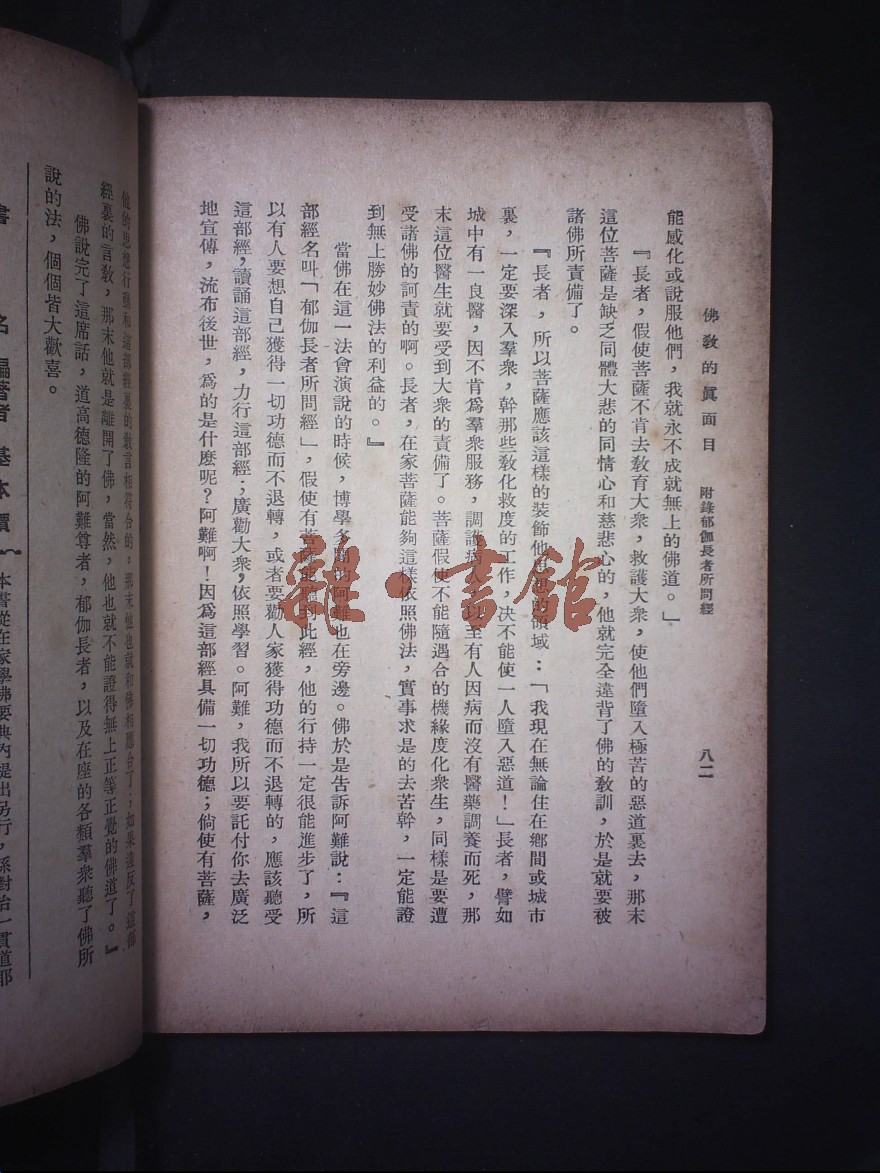 佛教的眞面目　附錄郁伽長者所問經　八二
能感化或說服他們，我就永不成就無上的佛道。」
『長者，假使菩薩不肯去敎育大衆，救護大衆，使他們墮入極苦的惡道裏去，那末
這位菩薩是缺乏同體大悲的同情心和慈悲心的，他就完全違背了佛的敎訓，於是就要被
諸佛所責備了。
『長者，所以菩薩應該這樣的裝飾他思想的領域：「我現在無論住在鄉間或城市
裏，一定要深入羣衆，幹那些敎化救度的工作，決不能使一人墮入惡道！」長者，譬如
城中有一良醫，因不肯爲羣衆服務，調治病人，以至有人因病而沒有醫藥調養而死，那
末這位醫生就要受到大衆的責備了。菩薩假使不能隨遇合的機緣度化衆生，同樣是要遭
受諸佛的訶責的啊。長者，在家菩薩能夠這樣依照佛法，實事求是的去苦幹，一定能證
到無上勝妙佛法的利益的。』
當佛在這一法會演說的時候，博學多聞的阿難也在旁邊。佛於是告訴阿難說：『這
部經名叫「郁伽長者所問經」，假使有菩薩能聽到此經，他的行持一定很能進步了，所
以有人要想自己獲得一切功德而不退轉，或者要勸人家獲得功德而不退轉的，應該聽受
這部經，讀誦這部經，力行這部經；廣勸大衆，依照學習。阿難，我所以要託付你去廣泛
地宣傳，流布後世，爲的是什麽呢？阿難啊！因爲這部經具備一切功德；倘使有菩薩，
他的思想行動和這部經裏的敎言相符合的，那末他也就和佛相應合了；如果違反了這部
經裏的言敎，那末他就是離開了佛，當然，他也就不能證得無上正等正覺的佛道了。』
佛說完了這席話，道高德隆的阿難尊者，郁伽長者，以及在座的各類羣衆聽了佛所
說的法，個個皆大歡喜。
書名　編著者　基本價
本書從在家學佛要典內提出另行，係對治一貫道耶